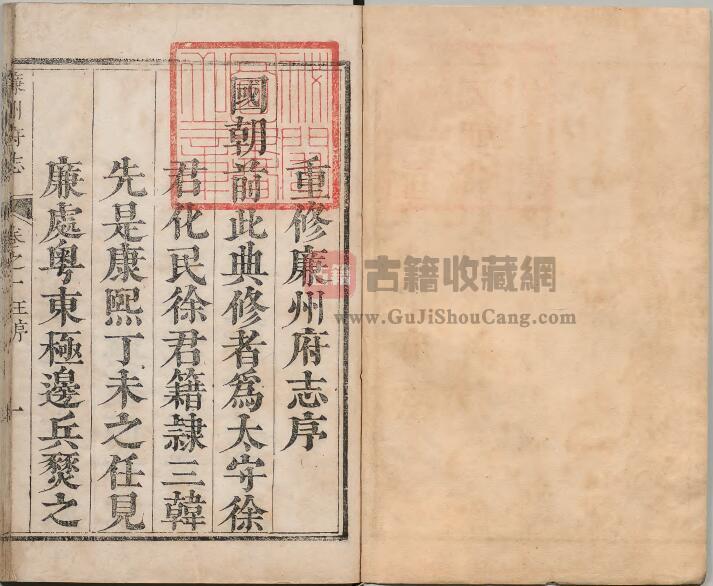 重修廉州府志序
國朝前此典修者為太守徐
君化民徐君籍隸三韓
先是康熙丁未之任見
廉處粵東極邊兵燹之
廉州府志
卷之一 汪序
一
古籍收藏網
www.GuJiShouCang.com